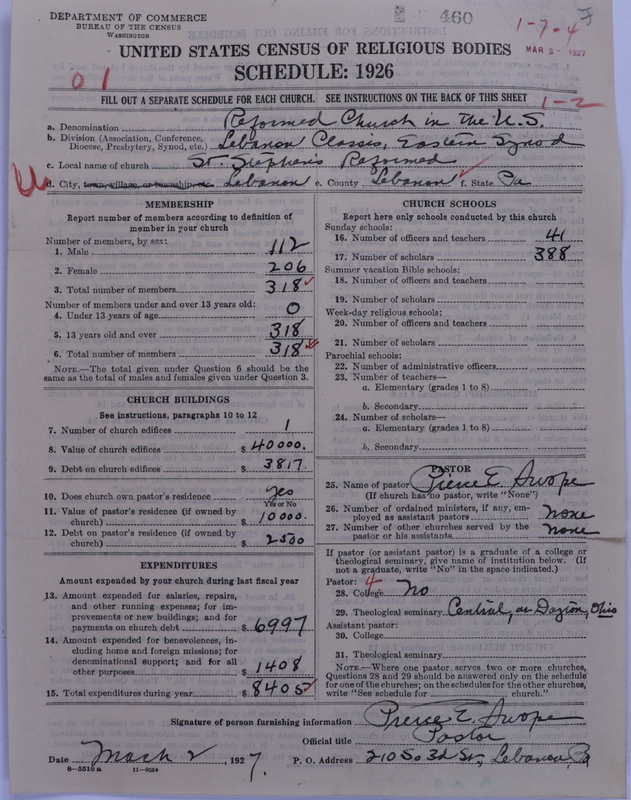 DEPARTMENT OF COMMERCE
BUREAU OF THE CENSUS
WASHINGTON
460
1-7-4
MAR 3 - 1927
UNITED STATES CENSUS OF RELIGIOUS BODIES
SCHEDULE: 1926
01
FILL OUT A SEPARATE SCHEDULE FOR EACH CHURCH. SEE INSTRUCTIONS ON THE BACK OF THIS SHEET
1-2
a. Denomination Reformed Church in the U.S.
b. Division (Association, Conference, Diocese, Presbytery, Synod, etc.) Lebanon Classis, Eastern Synod
c. Local name of church St. Stephen's Reformed
d. City, town, village, or township, etc. Lebanon e. County Lebanon f. State Pa
MEMBERSHIP
Report number of members according to definition of
member in your church
Number of members, by sex:
1. Male 112
2. Female 206
3. Total number of members 318
Number of members under and over 13 years old:
4. Under 13 years of age 0
5. 13 years old and over 318
6. Total number of members 318
NOTE.—The total given under Question 6 should be
same as the total of males and females given under Question 3.
CHURCH BUILDINGS
See instructions, paragraphs 10 to 12
7. Number of church edifices 1
8. Value of church edifices $ 40000.
9. Debt on church edifices $ 3817.
10. Does church own pastor's residence yes
Yes or No
11. Value of pastor's residence (if owned by
church) $ 10000.
12. Debt on pastor's residence (if owned by
church) $ 2500
EXPENDITURES
Amount expended by your church during last fiscal year
13. Amount expended for salaries, repairs,
and other running expenses; for im-
provements or new buildings; and for
payments on church debt $ 6997
14. Amount expended for benevolences, in-
cluding home and foreign missions; for
denominational support; and for all
other purposes $ 1408
15. Total expenditures during year $ 8405
CHURCH SCHOOLS
Report here only schools conducted by this church
Sunday schools:
16. Number of officers and teachers 41
17. Number of scholars 388
Summer vacation Bible schools:
18. Number of officers and teachers
19. Number of scholars
Week-day religious schools:
20. Number of officers and teachers
21. Number of scholars
Parochial schools:
22. Number of administrative officers
23. Number of teachers—
a. Elementary (grades 1 to 8)
b. Secondary
24. Number of scholars—
a. Elementary (grades 1 to 8)
b. Secondary
PASTOR
25. Name of pastor Pierce E. Swope
(If church has no pastor, write "None")
26. Number of ordained ministers, if any, em-
ployed as assistant pastors none
27. Number of other churches served by the
pastor or his assistants none
If pastor (or assistant pastor) is a graduate of a college or
theological seminary, give name of institution below. (If
not a graduate, write "No" in the space indicated.)
Pastor: 4
28. College No
29. Theological seminary Central, Dayton, Ohio
Assistant pastor:
30. College
31. Theological seminary
NOTE.—Where one pastor serves two or more churches,
Questions 28 and 29 should be answered only on the schedule
for one of the churches; on the schedules for the other churches,
write "See schedule for church."
Signature of person furnishing information Pierce E. Swope
Official title Pastor
Date March 2, 1927. P. O. Address 210 So 3d St, Lebanon, Pa
8-5518a 11-9054